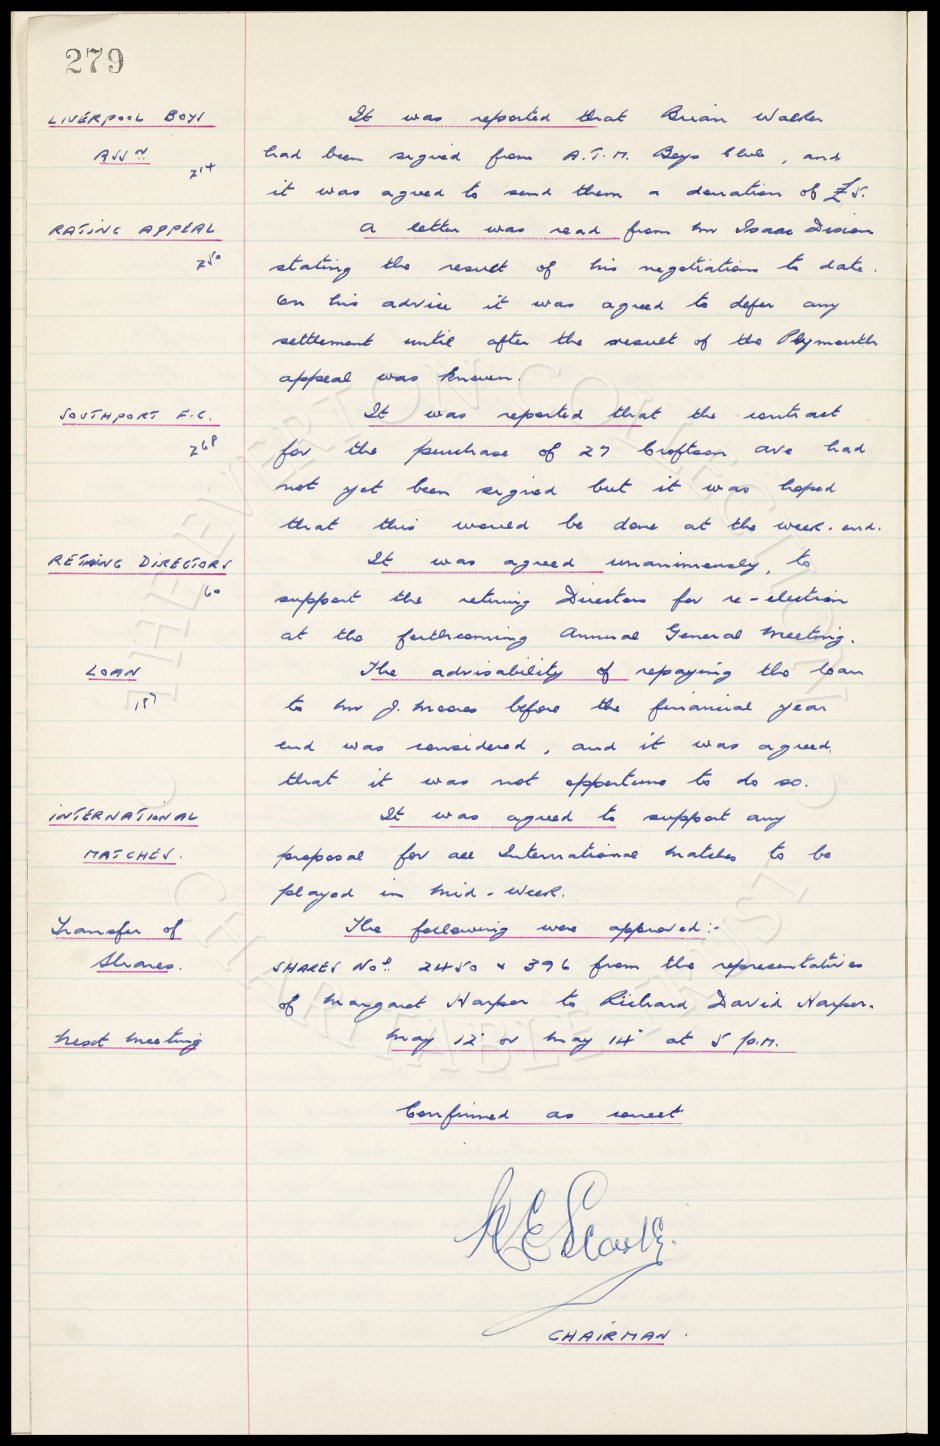 279
LIVERPOOL BOYS It was reported that Brian Walker
ASSN had been signed from A.T.M. Boys Club, and
214 it was agreed to send them a donation of £5.
RATING APPEAL A letter was read from Mr Isaac Dixon
250 stating the result of his negotiations to date.
On his advice it was agreed to defer any
settlement until after the result of the Plymouth
appeal was known.
SOUTHPORT F.C. It was reported that the contract
268 for the purchase of 27 Croftson Ave had
not yet been signed but it was hoped
that this would be done at the week-end.
RETIRING DIRECTORS It was agreed unanimously, to
60 support the retiring Directors for re-election
at the forthcoming Annual General Meeting.
LOAN The advisability of repaying the loan
157 to Mr J. Moores before the financial year
end was considered, and it was agreed
that it was not opportune to do so.
INTERNATIONAL It was agreed to support any
MATCHES. proposal for all International Matches to be
played in Mid-Week.
Transfer of The following were approved:-
Shares. SHARES Nos. 2450 & 396 from the representatives
of Margaret Harper to Richard David Harper.
Next Meeting May 12 or May 14 at 5 p.m.
Confirmed as correct
CHAIRMAN.
THE EVERTON COLLECTION
CHARITABLE TRUST